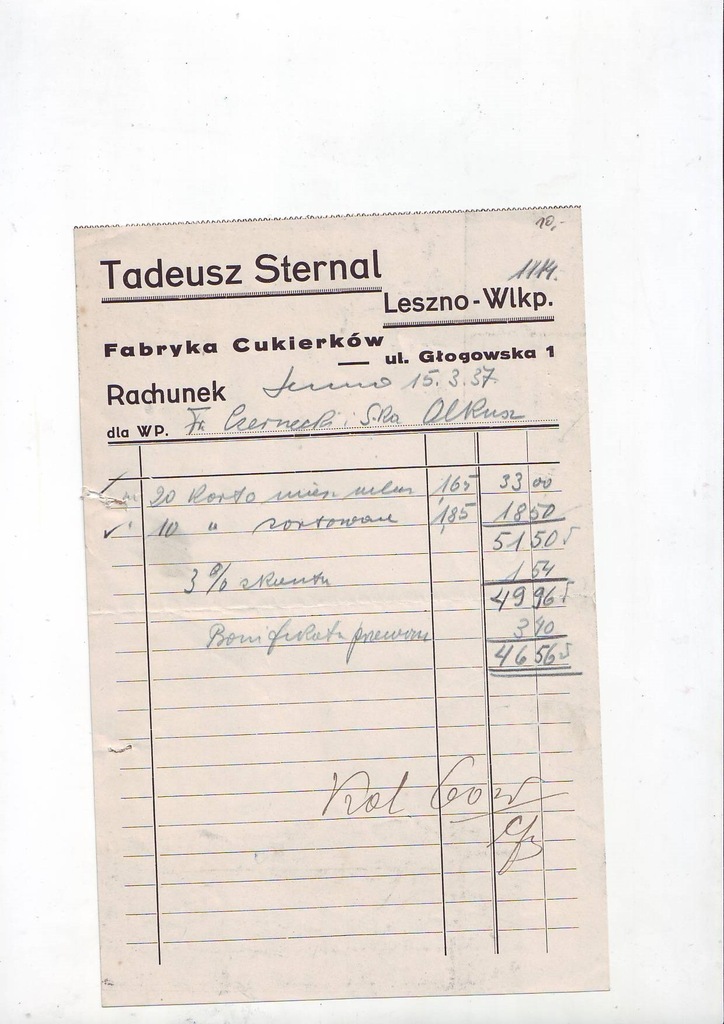 10,-
Tadeusz Sternal
1114.
Leszno-Wlkp.
Fabryka Cukierków
— ul. Głogowska 1
Rachunek 15.3.37.
dla WP. Fr Czernecki i Ska Olkusz
20 Karto miesz 165 33 00
10 " sortowane 1,85 18 50
51 50
3 % skonta 1 54
49 96
Bonifikata przewozu 3 40
46 56